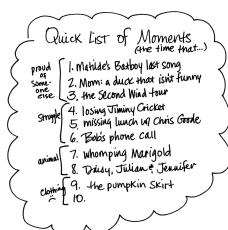 Quick List of Moments
(the time that...)
proud of some-one else
1. Matilde's Batboy last song
2. Mom: a duck that isn't funny
3. the Second Wind tour
Struggle
4. losing Jiminy Cricket
5. missing lunch w/ Chris Goode
6. Bob's phone call
animal
7. whomping Marigold
8. Daisy, Julian & Jennifer
Clothing
9. the pumpkin skirt
10.